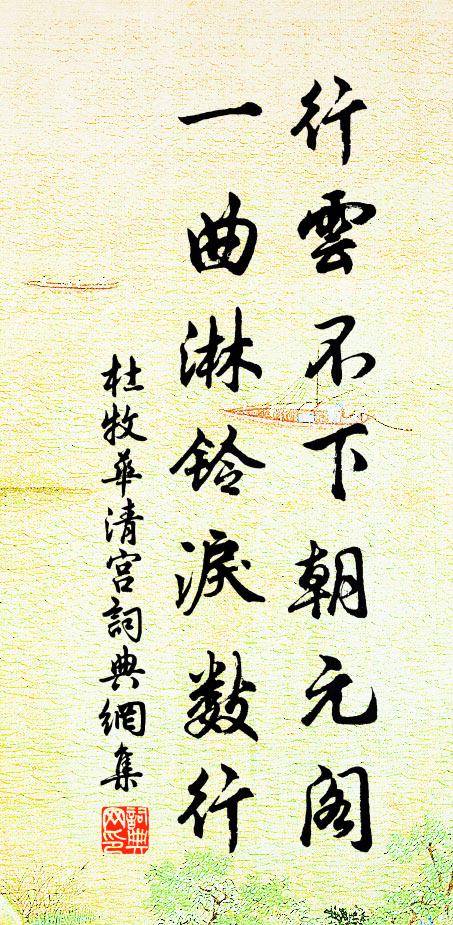 行雲不下朝元阁
一曲淋鈴淚数行
杜牧華清宮詞典網集
詞典网印